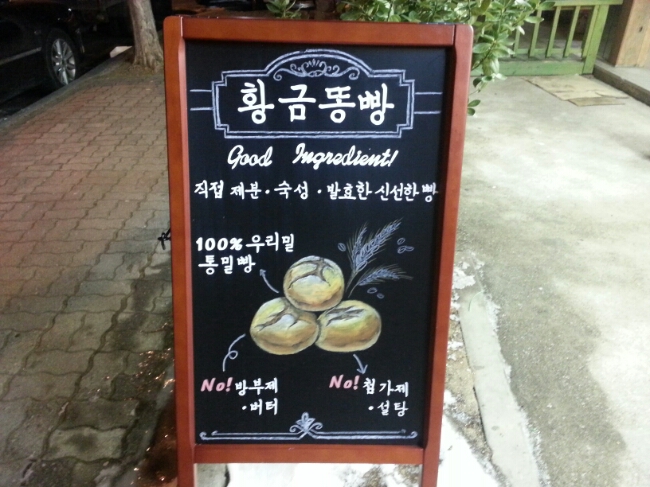 황금똥빵
Good Ingredient!
직접 제분·숙성·발효한 신선한 빵
100% 우리밀
통밀빵
No! 방부제
·버터
No! 첨가제
·설탕